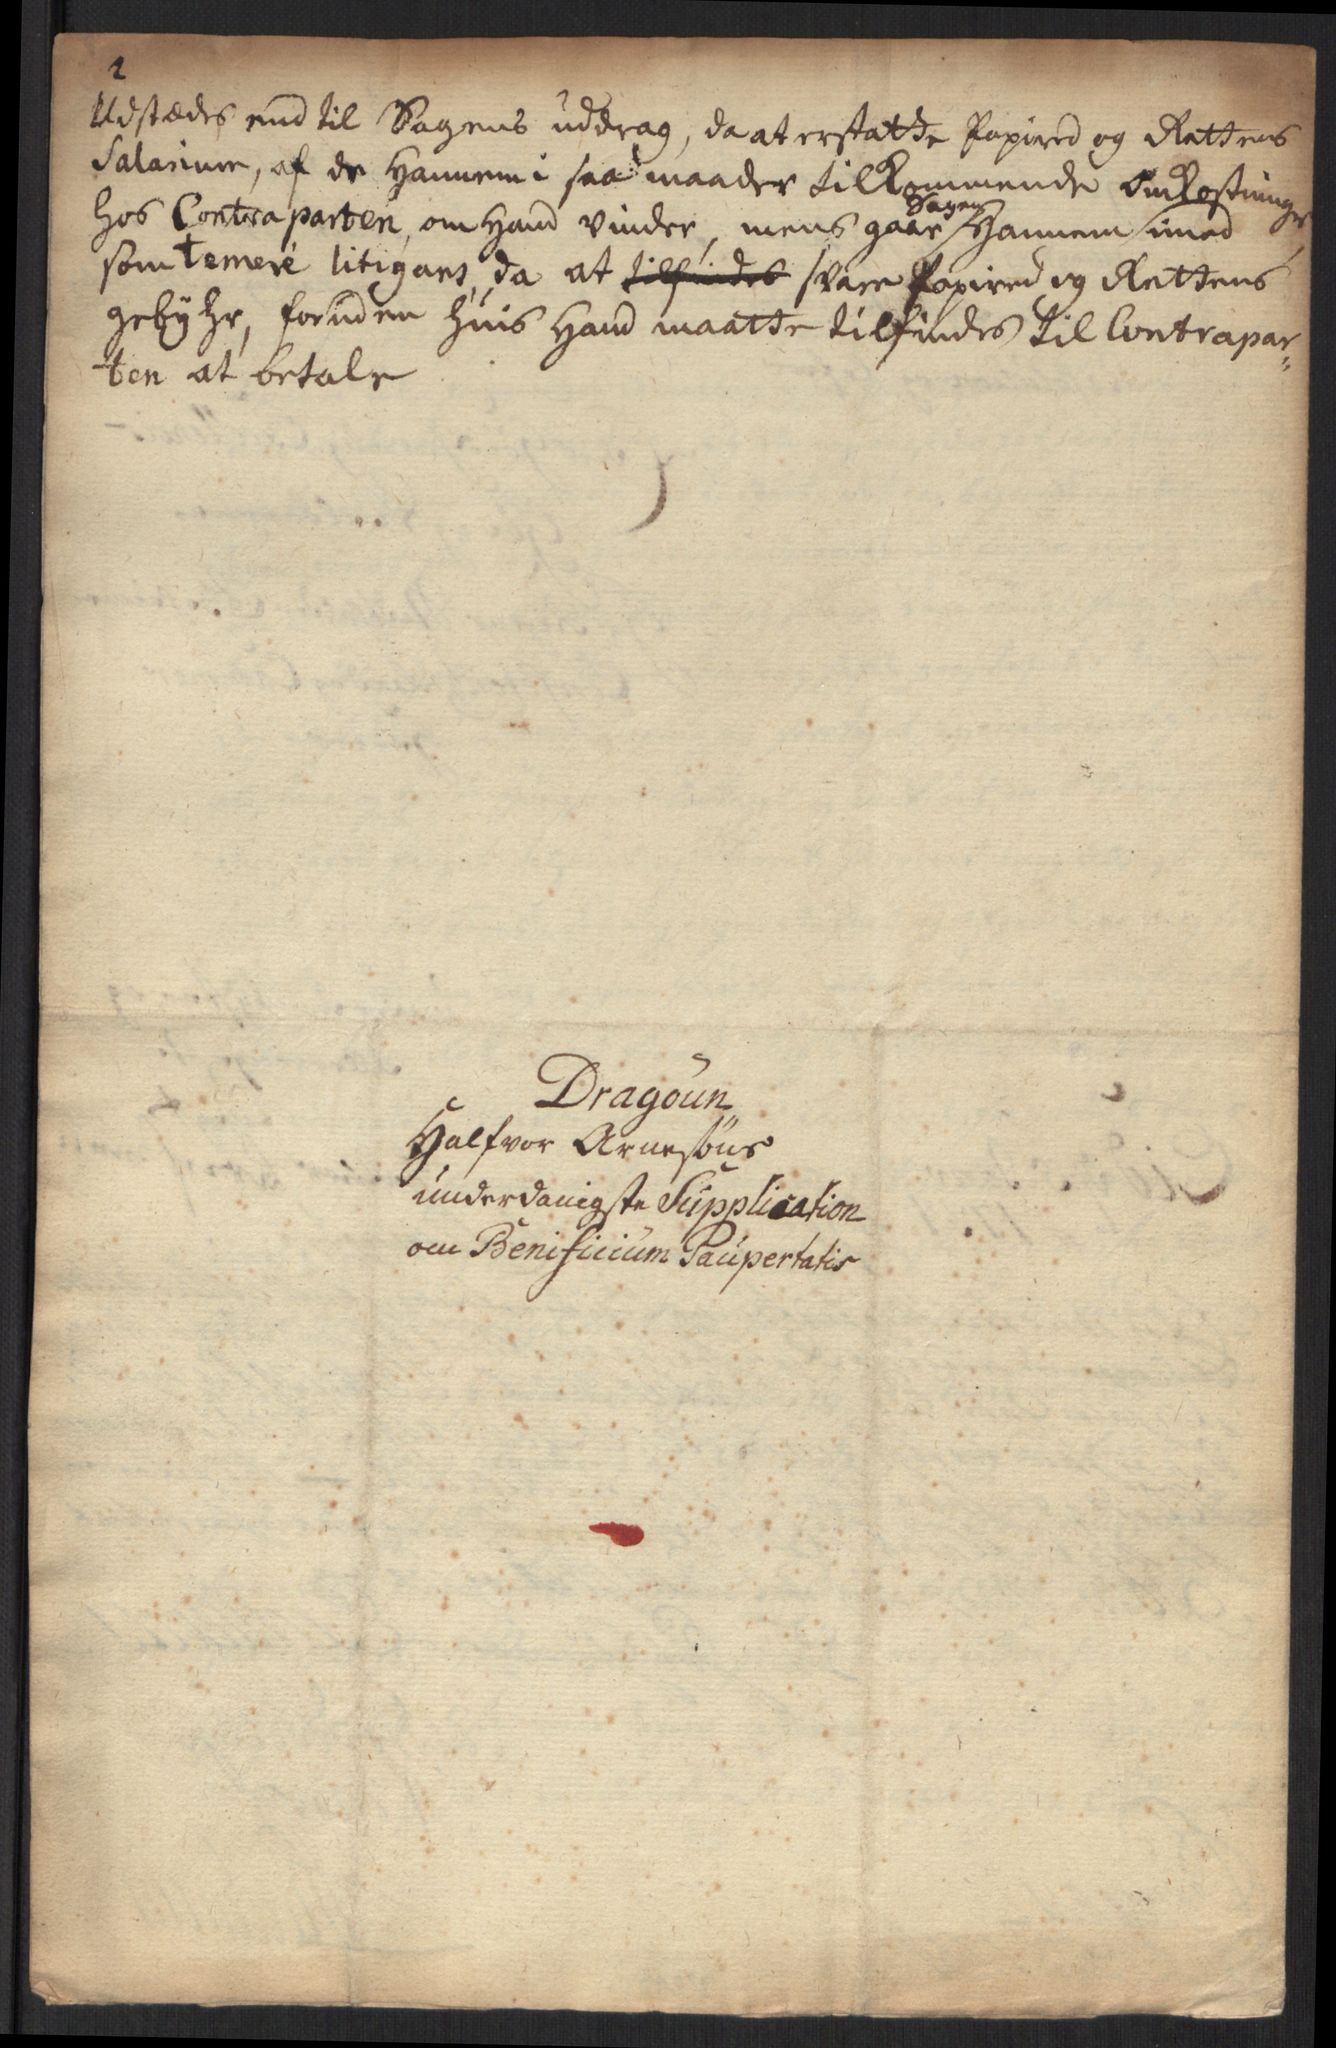 2
Udstædes end til Sagens uddrag, da at erstatte Papired og Rettens
Salarium, af de Hannem i saa maader tilkommende Omkostninger
hos Contraparten, om Hand vinder, mens gaar Sagen Hannem imod
som temerè litigans, da at tilfindes svare Papired og Rettens
gebyhr, foruden huis Hand maatte tilfindes til Contrapar-
ten at betale
Dragoun
Halfvor Arnesøns
underdanigste Supplication
om Benificium Paupertatis